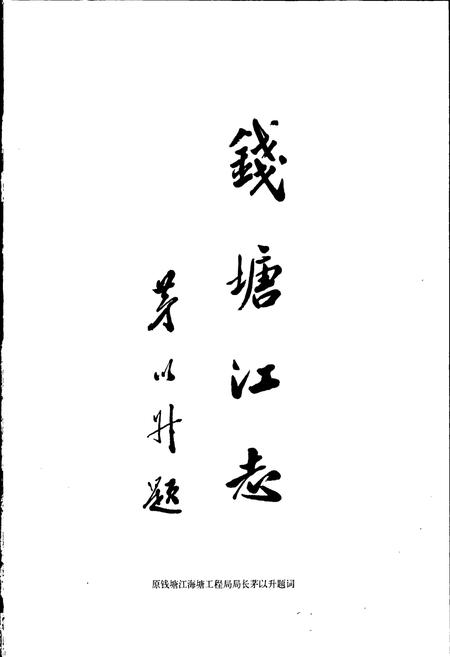 錢塘江志
茅以升題
原钱塘江海塘工程局局长茅以升题词